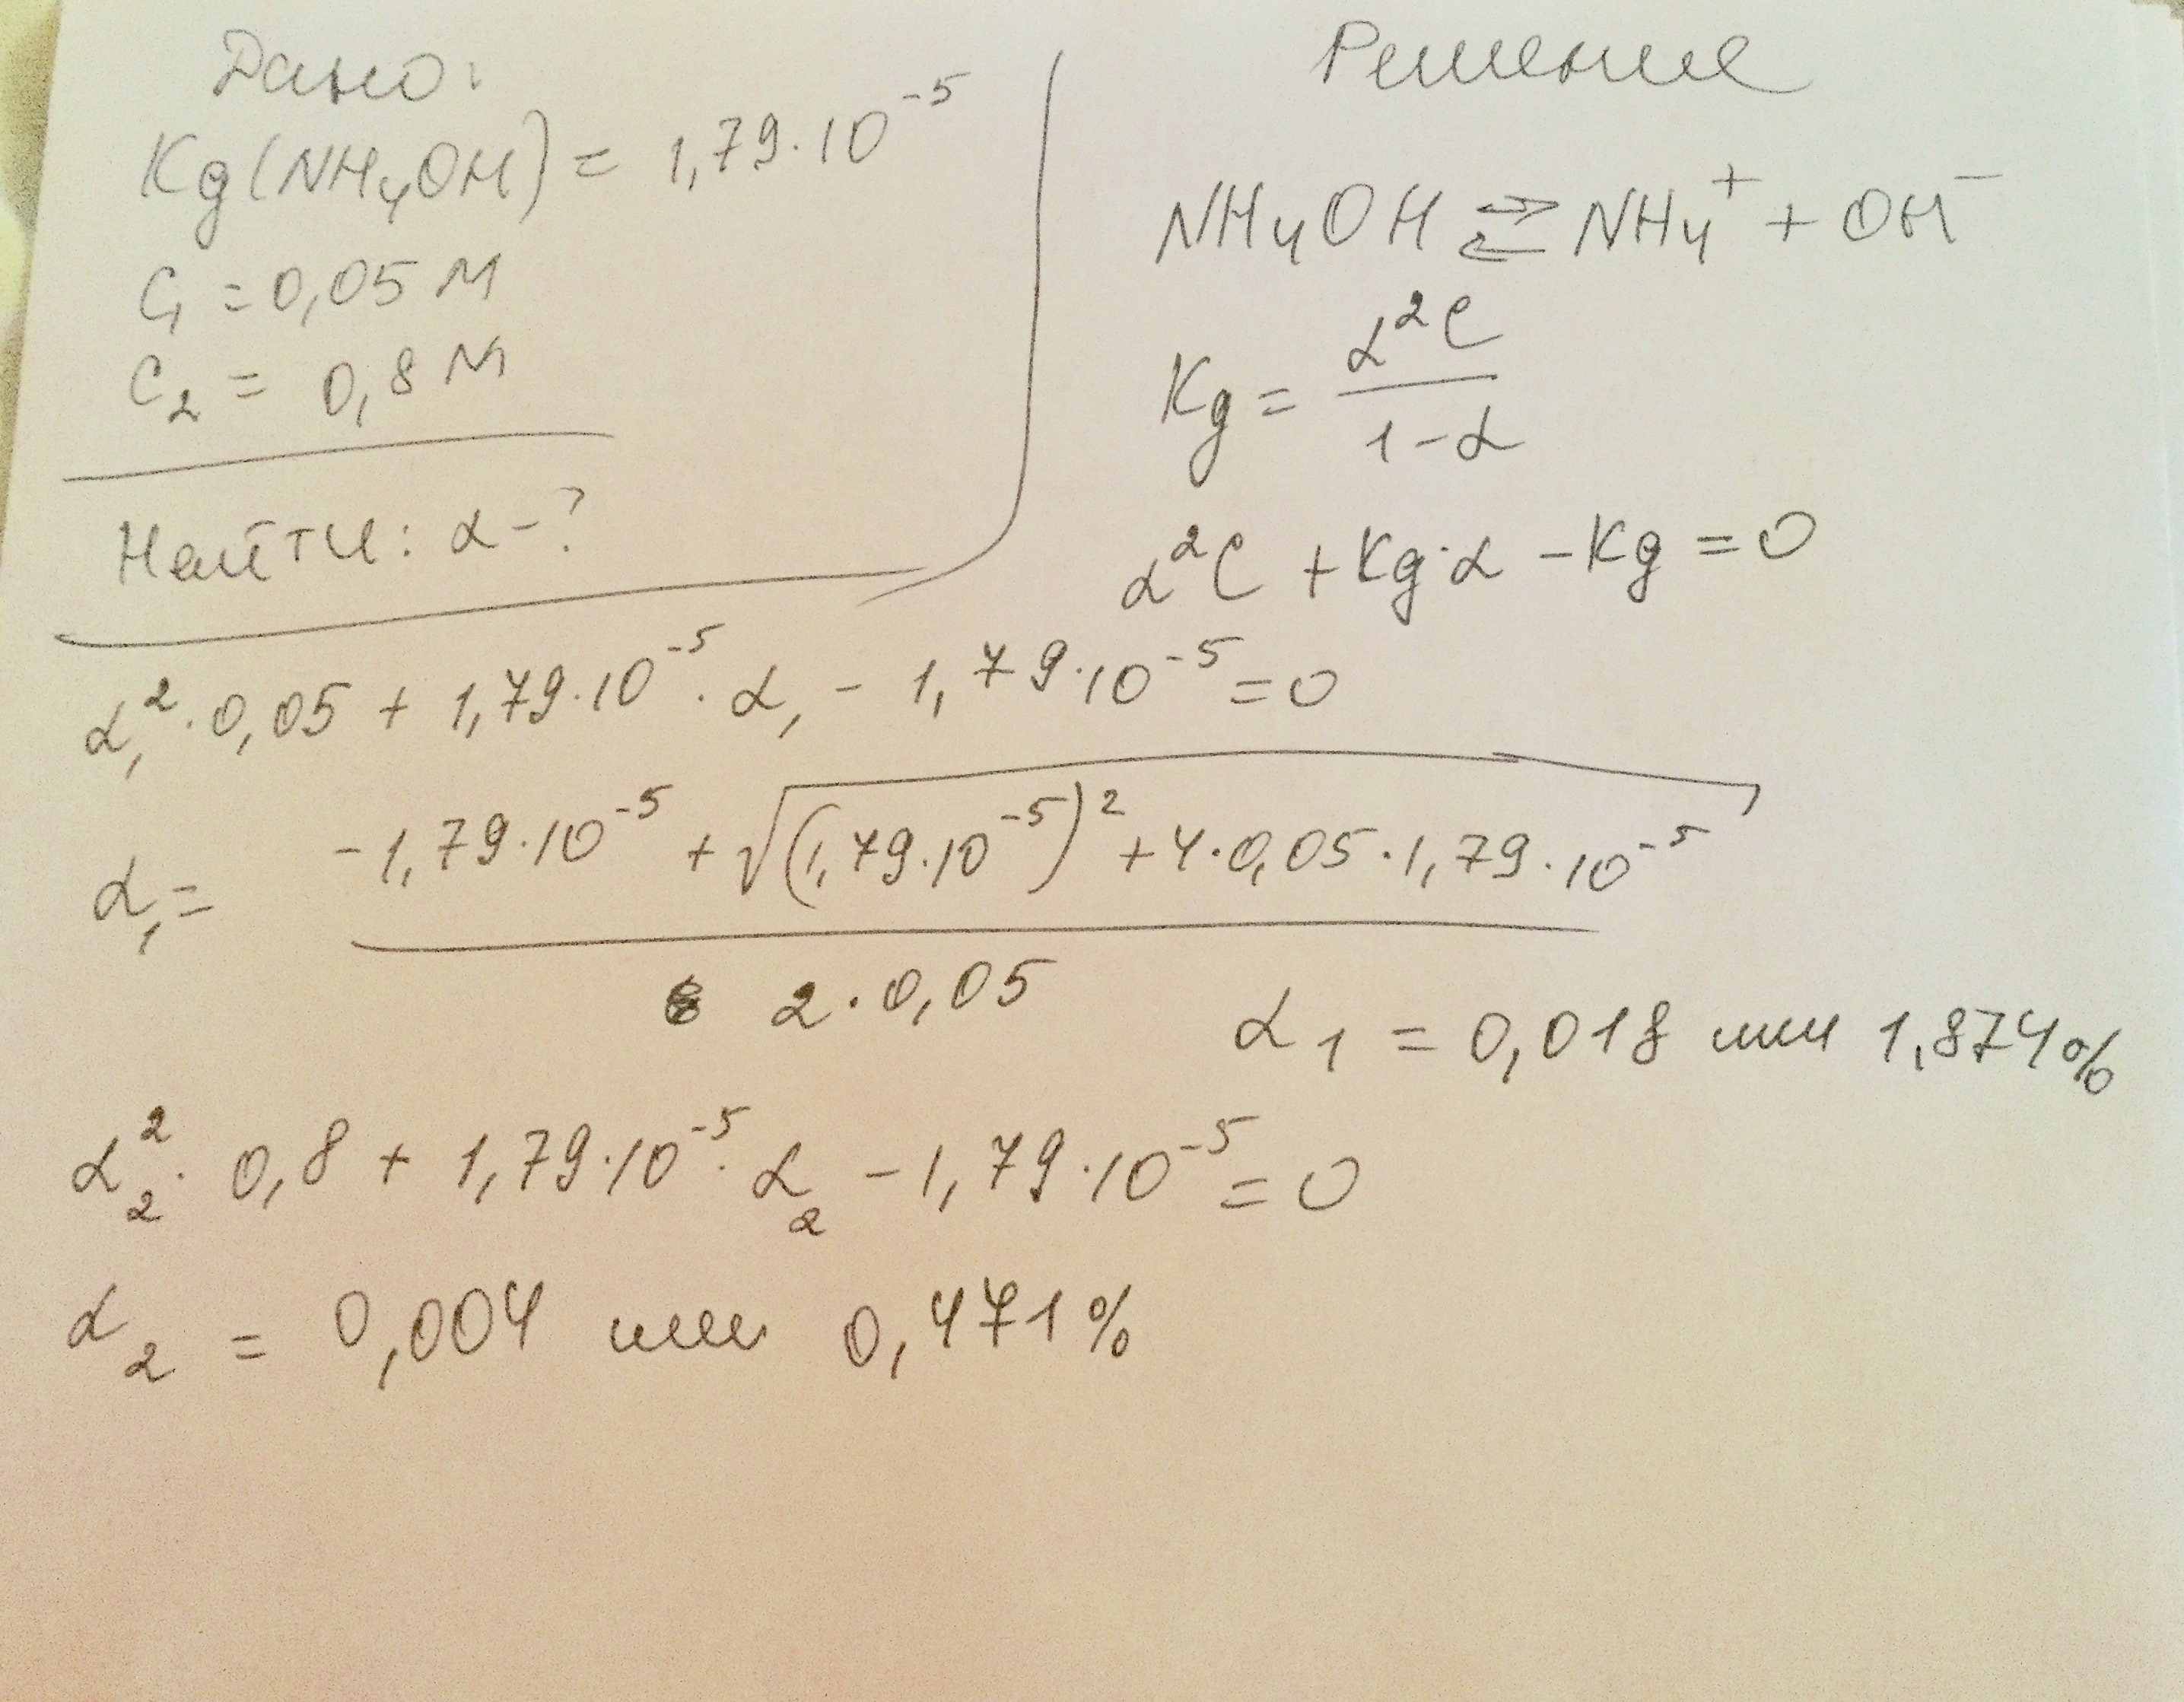 Дано:
Kg(NH₄OH) = 1,79·10⁻⁵
C₁ = 0,05 M
C₂ = 0,8 M
Найти: α - ?
Решение
NH₄OH ⇄ NH₄⁺ + OH⁻
Kg = α²C / (1-α)
α²C + Kg·α - Kg = 0
α₁²·0,05 + 1,79·10⁻⁵·α₁ - 1,79·10⁻⁵ = 0
α₁ = (-1,79·10⁻⁵ + √((1,79·10⁻⁵)² + 4·0,05·1,79·10⁻⁵)) / (2·0,05)
α₁ = 0,018 или 1,874%
α₂²·0,8 + 1,79·10⁻⁵·α₂ - 1,79·10⁻⁵ = 0
α₂ = 0,004 или 0,471%